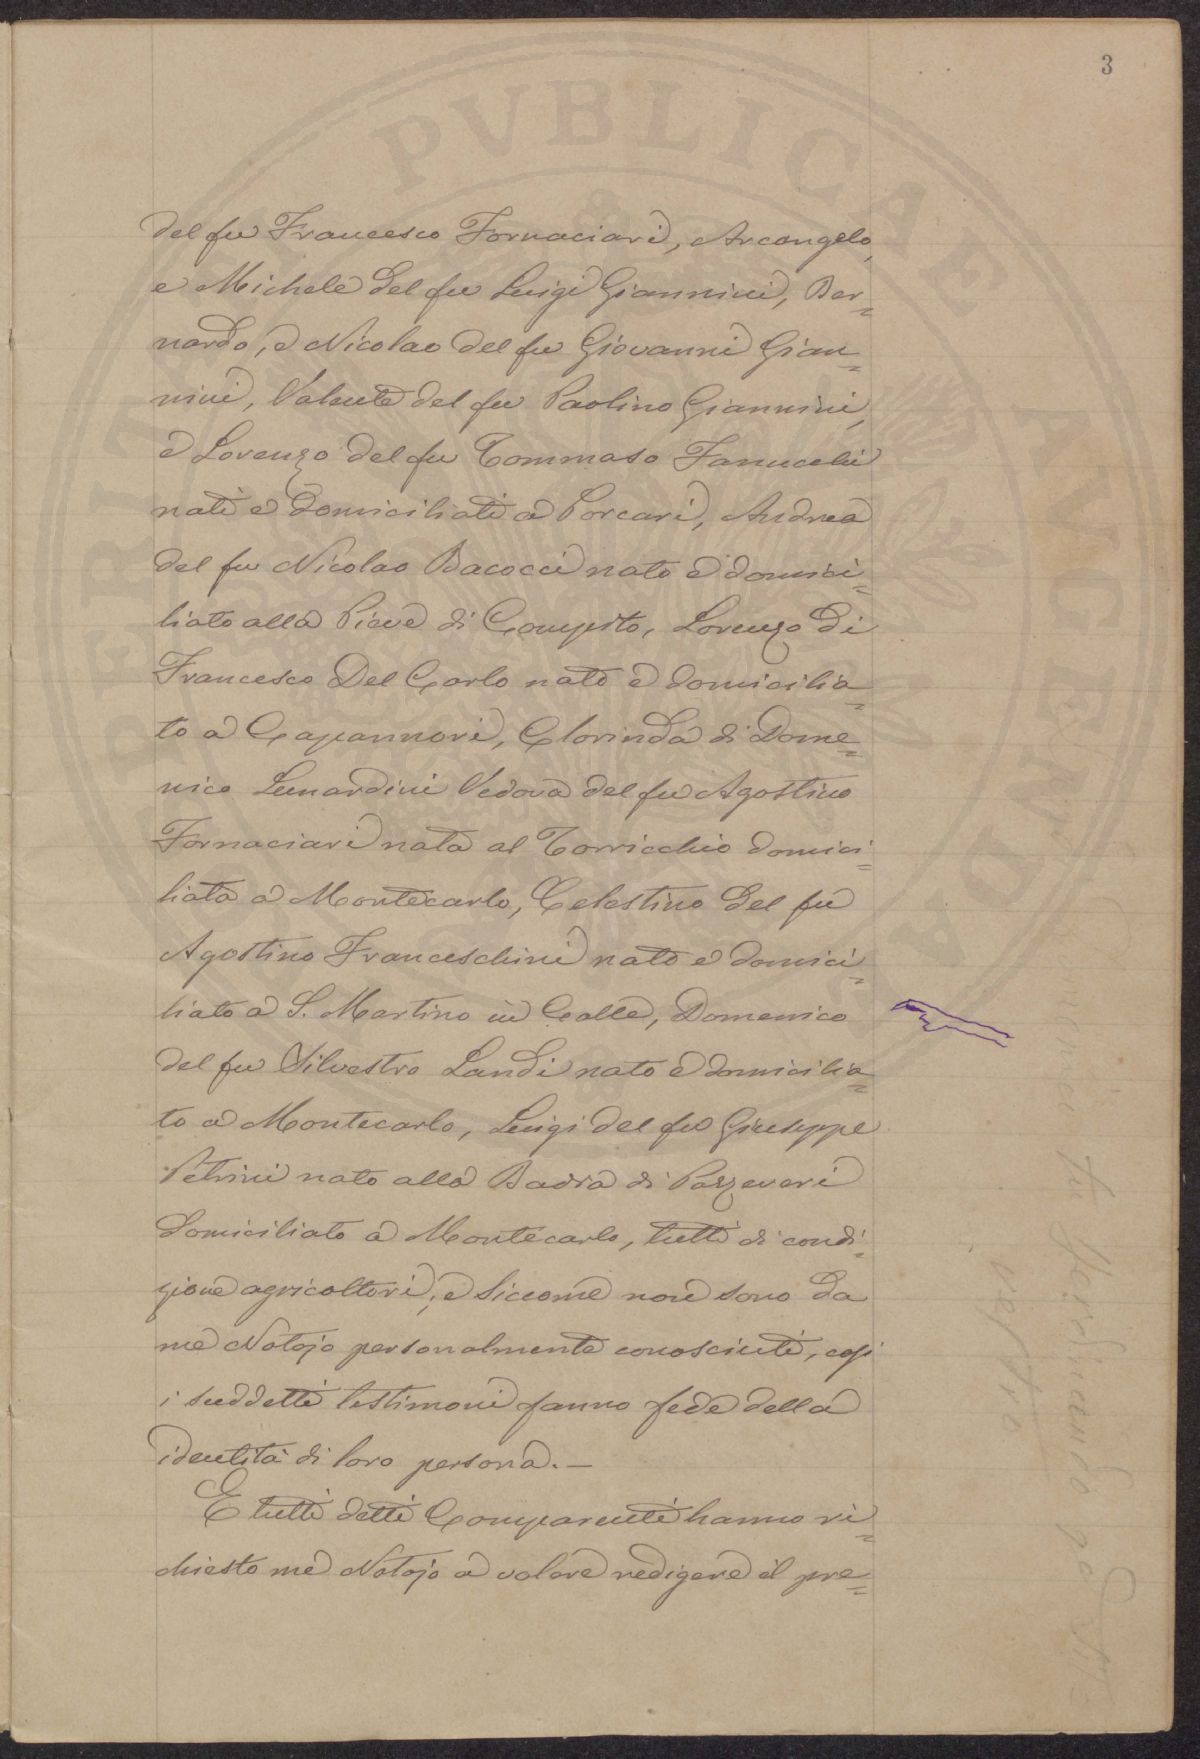 3
del fu Francesco Fornaciari, Arcangelo,
e Michele del fu Luigi Giannini, Ber=
nardo, e Nicolao del fu Giovanni Gian=
nini, Valente del fu Paolino Giannini,
e Lorenzo del fu Tommaso Fanucchi
nati e domiciliati a Porcari, Andrea
del fu Nicolao Bacocci nato e domici=
liato alla Pieve di Compito, Lorenzo di
Francesco Del Carlo nato e domicilia=
to a Capannori, Clorinda di Dome=
nico Lunardini Vedova del fu Agostino
Fornaciari nata al Torricchio domici=
liata a Montecarlo, Celestino del fu
Agostino Franceschini nato e domici=
liato a S. Martino in Colle, Domenico
del fu Silvestro Landi nato e domicilia=
to a Montecarlo, Luigi del fu Giuseppe
Petrini nato alla Badia di Pozzeveri
domiciliato a Montecarlo, tutti di condi=
zione agricoltori; e siccome non sono da
me Notajo personalmente conosciuti, così
i suddetti testimoni fanno fede della
identità di loro persona.—
E tutti detti Comparenti hanno ri=
chiesto me Notajo a volere redigere il pre=